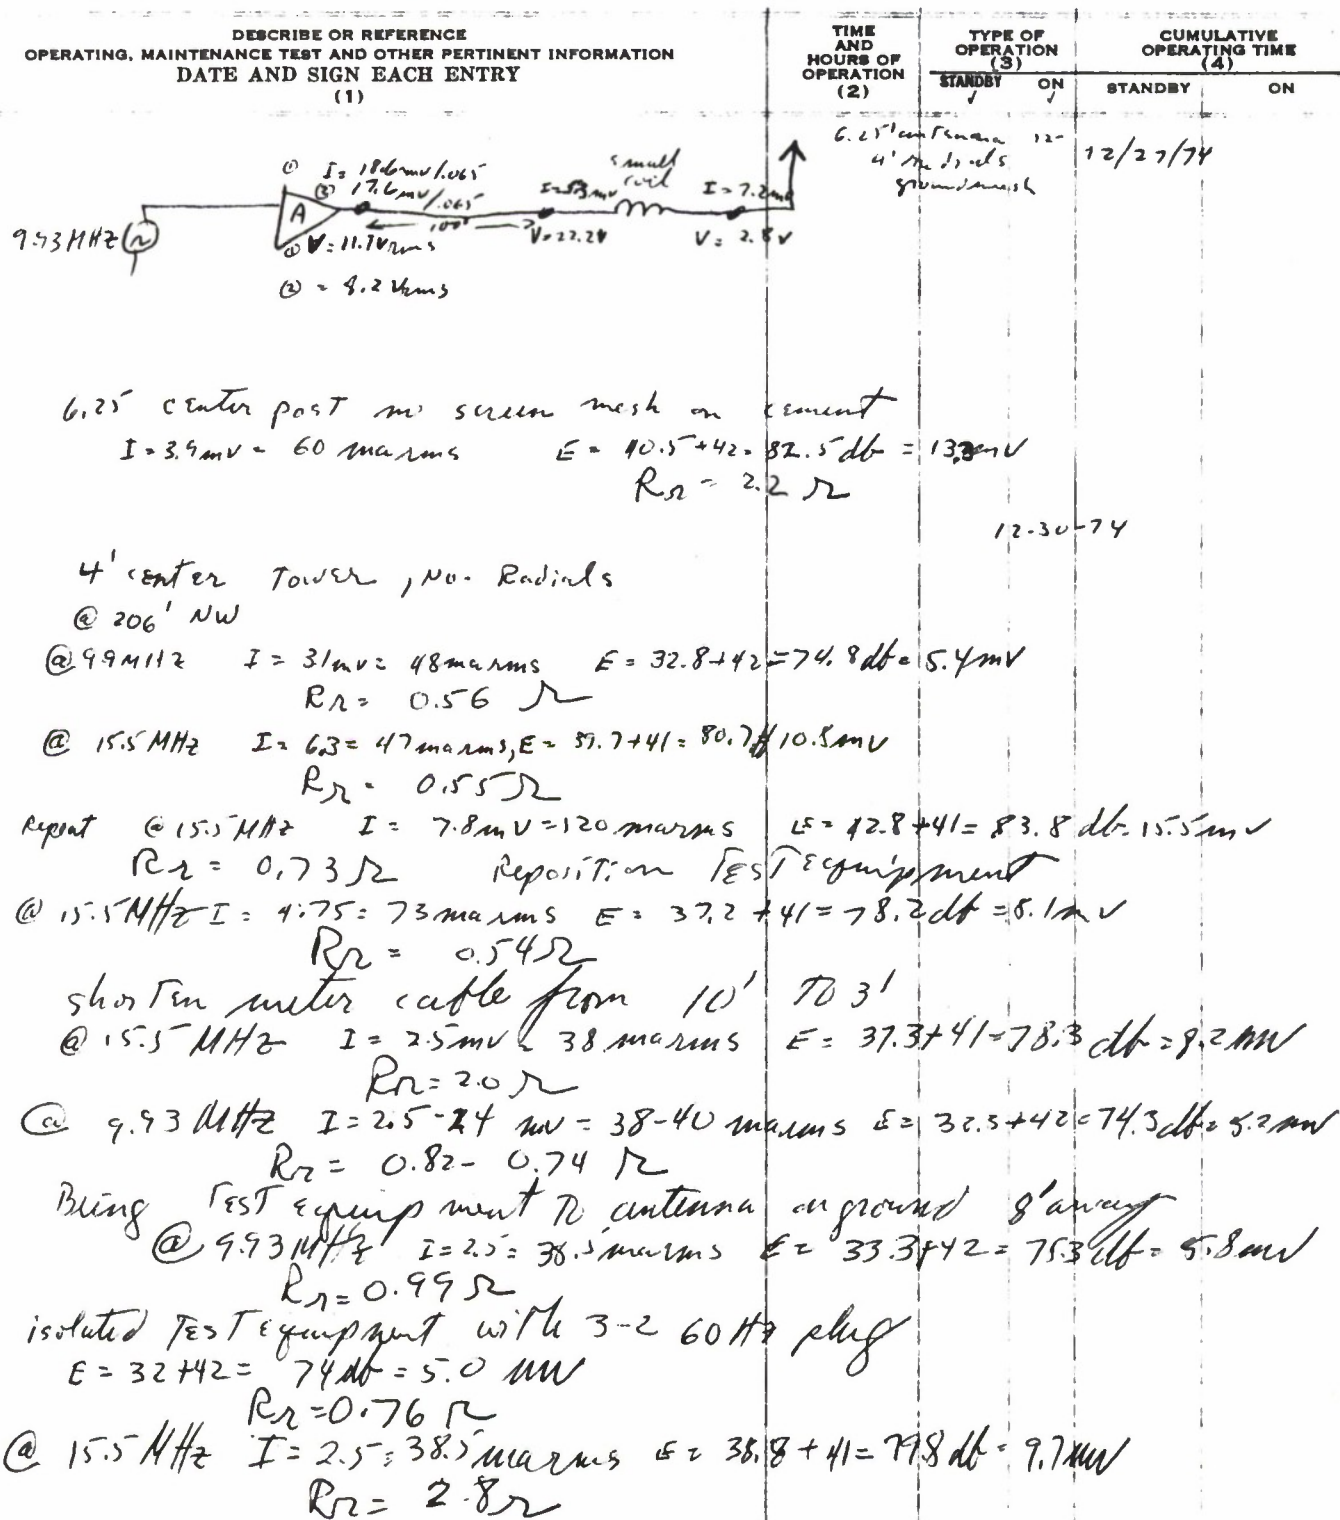 DESCRIBE OR REFERENCE
OPERATING, MAINTENANCE TEST AND OTHER PERTINENT INFORMATION
DATE AND SIGN EACH ENTRY
(1)
TIME
AND
HOURS OF
OPERATION
(2)
TYPE OF
OPERATION
(3)
STANDBY ON
CUMULATIVE
OPERATING TIME
(4)
STANDBY ON
6.25' antenna 12-
4' radials
ground mesh
12/27/74
① I = 18.6mv/.065
② 17.6mv/.065
small
coil
I = 7.2
9.93 MHZ
A
100'
V=22.2V
V= 2.8V
① V= 11.7Vrms
② = 8.2 Vrms
6.25 center post no screen mesh on cement
I = 3.9mv = 60 ma rms E = 40.5+42 = 82.5 db = 13.3mV
Rr = 2.2 Ω
12-30-74
4' center Tower, No. Radials
@ 206' NW
@ 9.9 MHz I = 3.1mv = 48 ma rms E = 32.8+42 = 74.8 db = 5.4mV
Rr = 0.56 Ω
@ 15.5 MHz I = 6.3 = 47 ma rms, E = 39.7+41 = 80.7 # 10.8mv
Rr = 0.55 Ω
Repeat @ 15.5 MHz I = 7.8mV = 120 ma rms E = 42.8+41 = 83.8 db = 15.5mv
Rr = 0.73 Ω Reposition Test Equipment
@ 15.5 MHz I = 4.75 = 73 ma rms E = 37.2+41 = 78.2 db = 8.1mv
Rr = 0.54 Ω
shorten meter cable from 10' To 3'
@ 15.5 MHz I = 2.5mv = 38 ma rms E = 37.3+41 = 78.3 db = 8.2 mv
Rr = 2.0 Ω
@ 9.93 MHz I = 2.5-2.4 mv = 38-40 ma rms E = 32.3+42 = 74.3 db = 5.2 mv
Rr = 0.82 - 0.74 Ω
Bring Test equipment To antenna on ground 8' away
@ 9.93 MHz I = 2.5 = 38.5 ma rms E = 33.3+42 = 75.3 db = 5.8mv
Rr = 0.99 Ω
isolated Test equipment with 3-2 60 Hz plug
E = 32+42 = 74 db = 5.0 mv
Rr = 0.76 Ω
@ 15.5 MHz I = 2.5 = 38.5 ma rms E = 38.8 + 41 = 79.8 db = 9.7 mv
Rr = 2.8 Ω